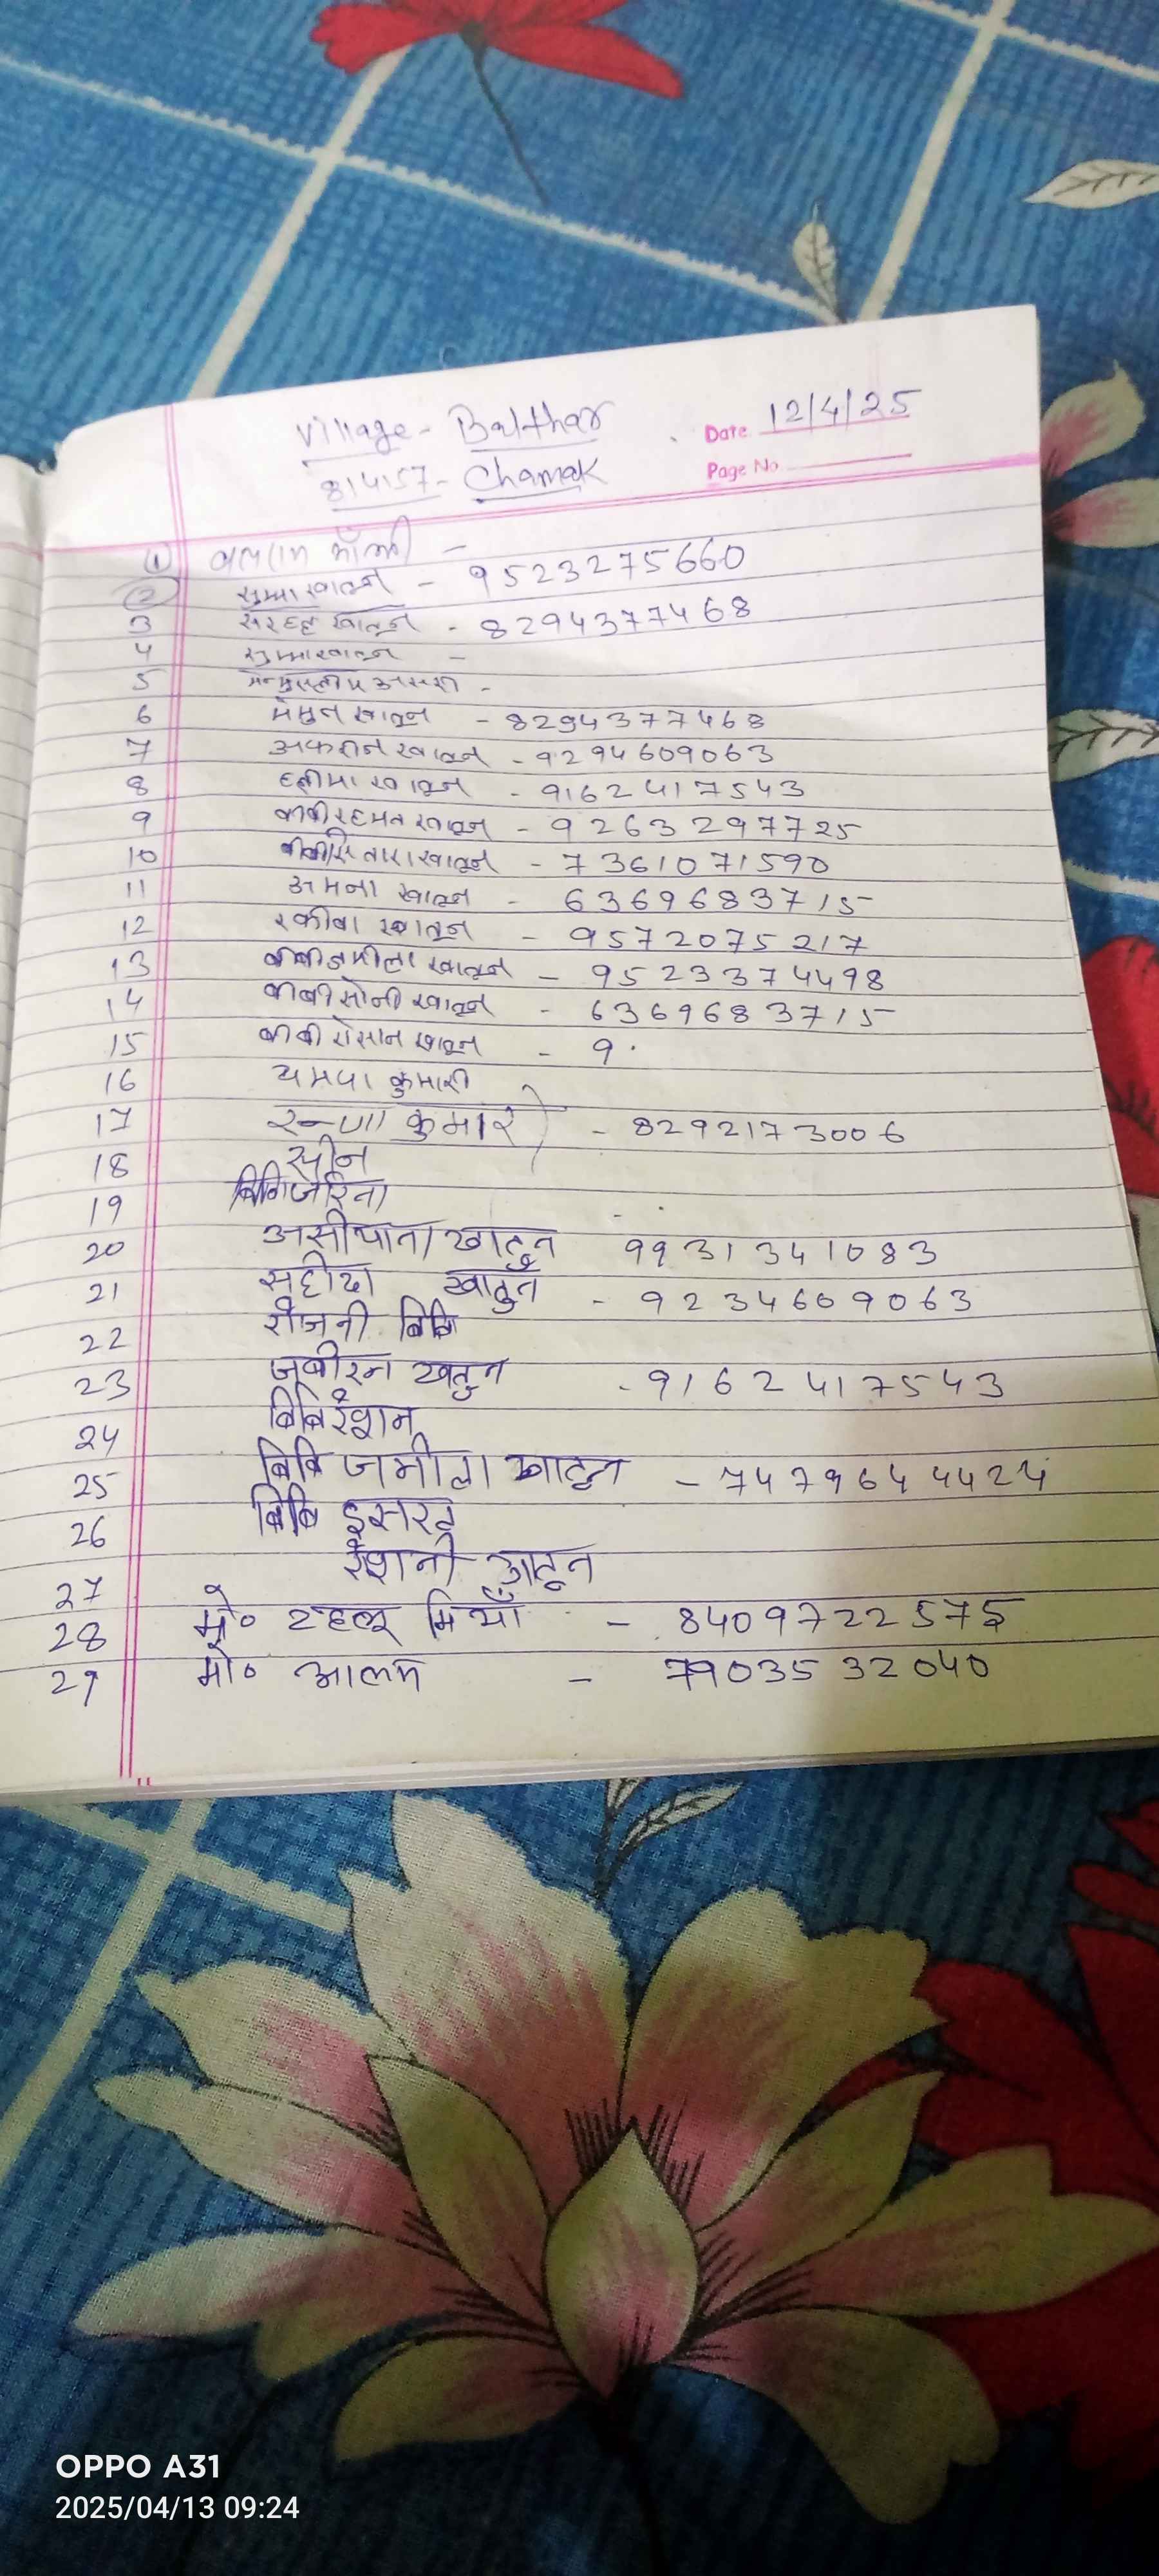 Village - Balthar
Date 12/4/25
814157 - Chamak
Page No
1 बलराम माँझी -
2 सुम्मा खातुन - 9523275660
3 खातुन - 8294377468
4 सुम्मा खातुन -
5 अंसारी -
6 मैमुन खातुन - 8294377468
7 खातुन - 9294609063
8 हलीमा खातुन - 9162417543
9 बीबी रहमत खातुन - 9263297725
10 बीबी सितारा खातुन - 7361071590
11 अमना खातुन - 6369683715
12 रकीबा खातुन - 9572075217
13 बीबी जमीला खातुन - 9523374498
14 बीबी सोनी खातुन - 6369683715
15 बीबी रोसान खातुन - 9.
16 चमपा कुमारी
17 कुमार ) - 8292173006
18
19 बिबि जरिना
20 खातुन 9931341083
21 सहीदा खातुन - 9234609063
22 रोजनी बिबि
23 जबीरन खतुन - 9162417543
24 बिबि रोशन
25 बिबि जमीला खातुन - 7479644424
26 बिबि इसरत
27 रोशनी खातून
28 मो० टहलू मियाँ - 8409722575
29 मो० आलम - 7903532040
OPPO A31
2025/04/13 09:24